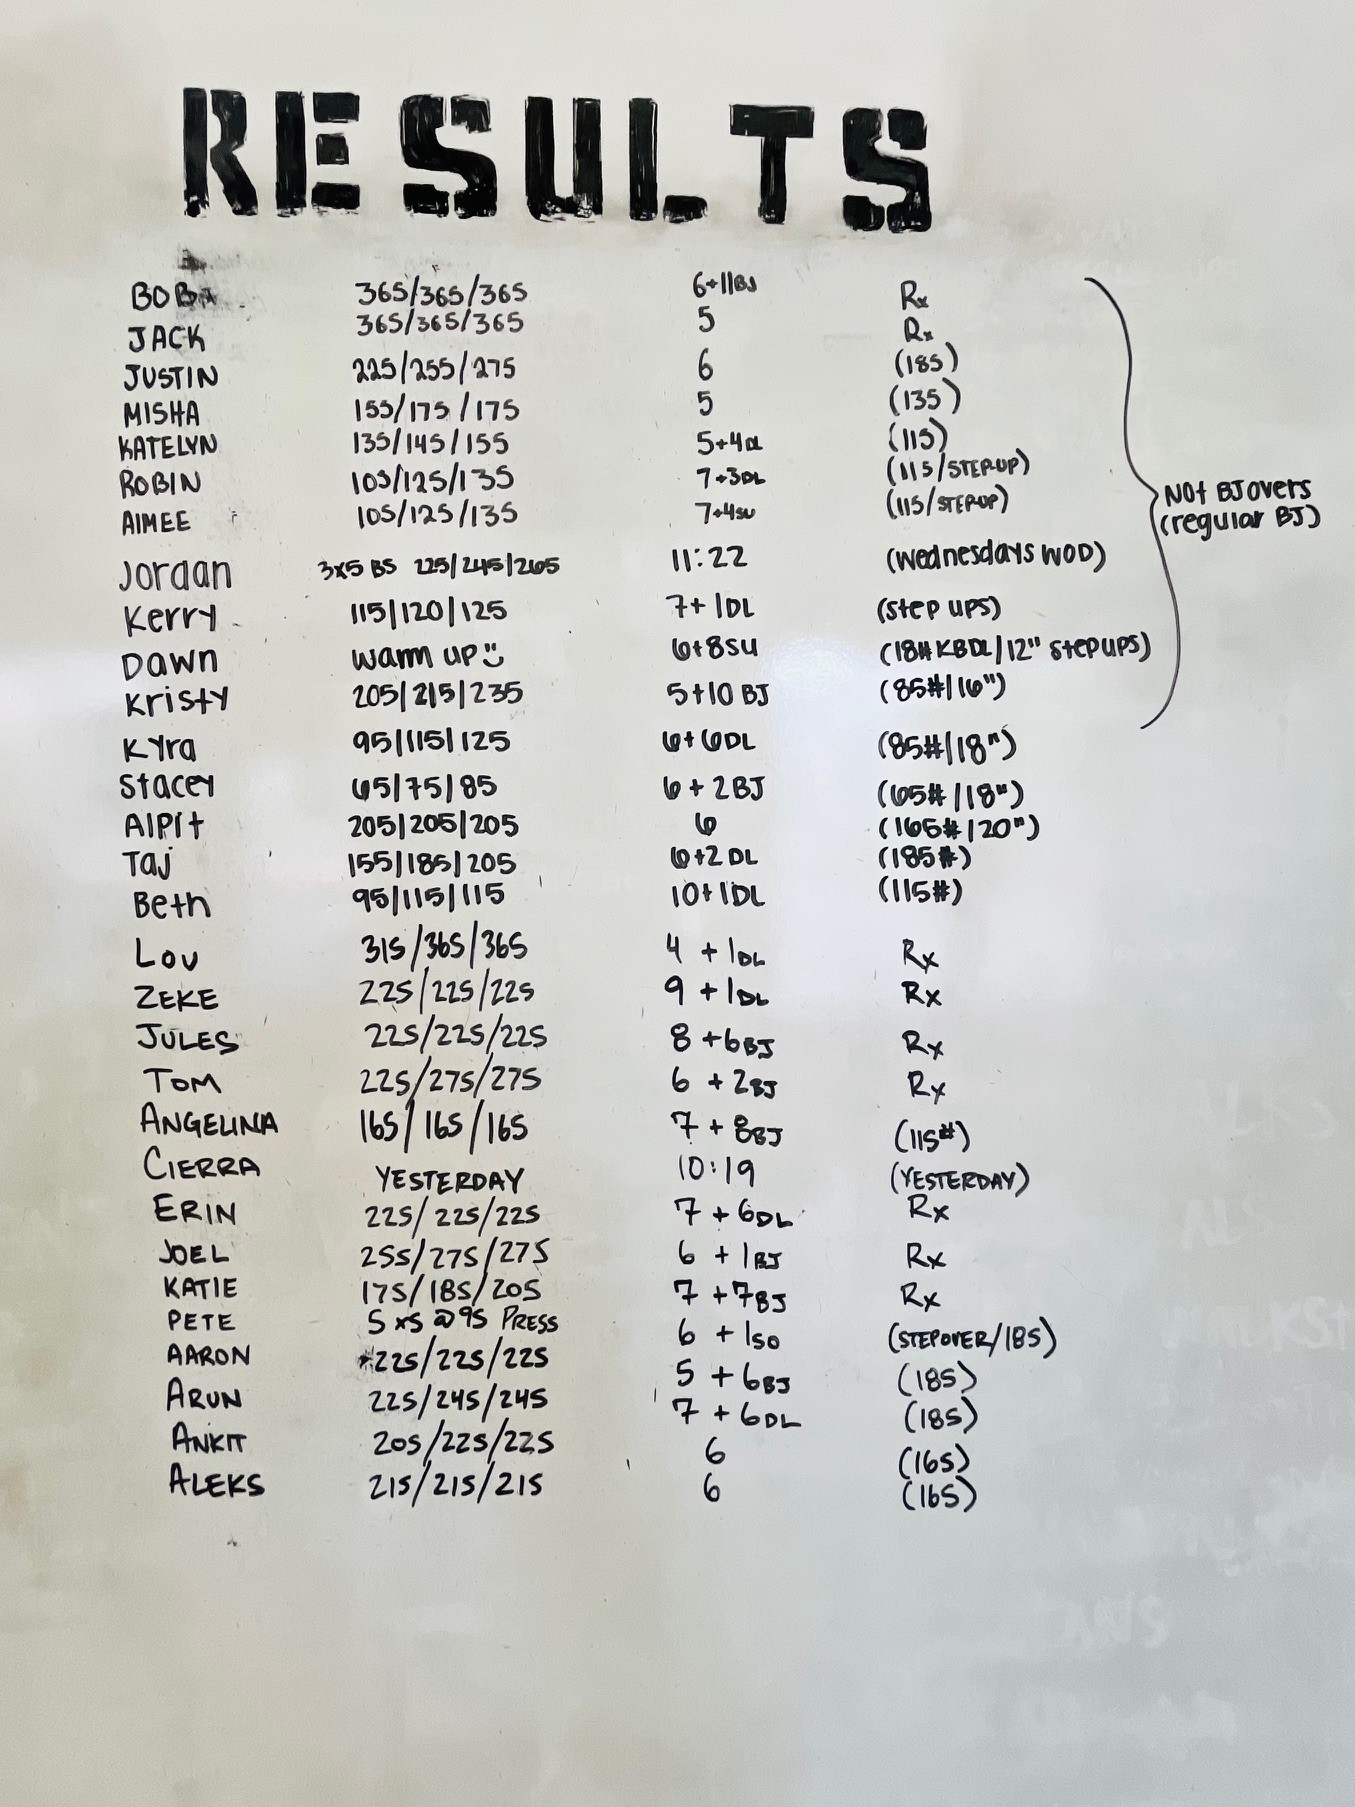 RESULTS
BOBA 365/365/365 6+11BJ Rx
JACK 365/365/365 5 Rx
JUSTIN 225/255/275 6 (185)
MISHA 155/175/175 5 (135)
KATELYN 135/145/155 5+4DL (115)
ROBIN 105/125/135 7+3DL (115/STEP-UP)
AIMEE 105/125/135 7+4SU (115/STEP-UP)
Not BJ overs
(regular BJ)
Jordan 3x5 BS 225/245/265 11:22 (Wednesdays WOD)
Kerry 115/120/125 7+1DL (step ups)
Dawn warm up 6+8SU (18# KBDL/12" step ups)
Kristy 205/215/235 5+10 BJ (85#/16")
Kyra 95/115/125 6+6DL (85#/18")
Stacey 65/75/85 6+2BJ (65#/18")
Alpit 205/205/205 6 (165#/20")
Taj 155/185/205 6+2 DL (185#)
Beth 95/115/115 10+1DL (115#)
LOU 315/365/365 4 + 1DL Rx
ZEKE 225/225/225 9 + 1DL Rx
JULES 225/225/225 8 + 6BJ Rx
TOM 225/275/275 6 + 2BJ Rx
ANGELINA 165/165/165 7 + 8BJ (115#)
CIERRA YESTERDAY 10:19 (YESTERDAY)
ERIN 225/225/225 7 + 6DL Rx
JOEL 255/275/275 6 + 1BJ Rx
KATIE 175/185/205 7 + 7BJ Rx
PETE 5x5 @95 PRESS 6 + 1SO (STEPOVER/185)
AARON 225/225/225 5 + 6BJ (185)
ARUN 225/245/245 7 + 6DL (185)
ANKIT 205/225/225 6 (165)
ALEKS 215/215/215 6 (165)